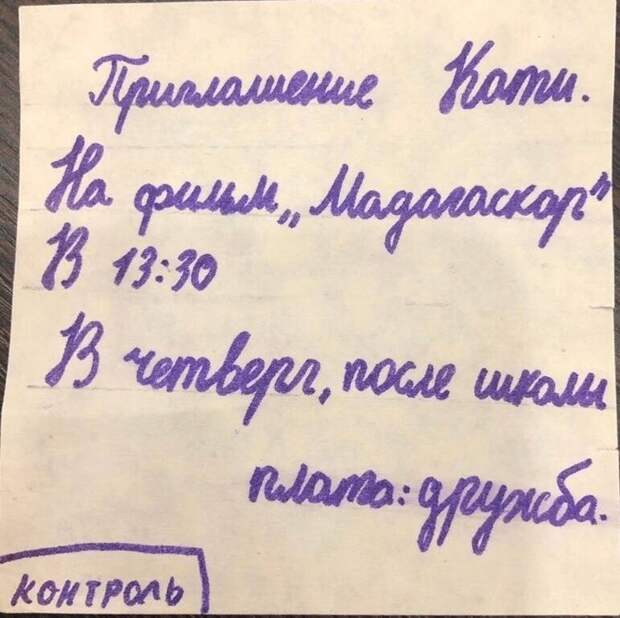 Приглашение Кати.
На фильм „Мадагаскар”
В 13:30
В четверг, после школы
плата: дружба.
КОНТРОЛЬ